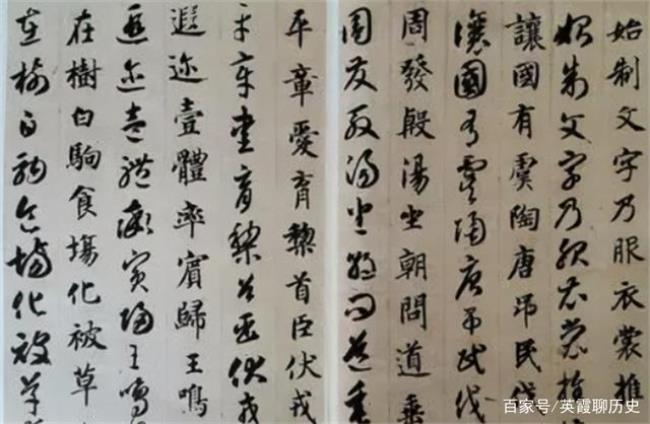 始制文字乃服衣裳推
始制文字乃服衣裳推
讓國有虞陶唐吊民伐
讓國有虞陶唐吊民伐
周發殷湯坐朝問道垂
周發殷湯坐朝問道垂
平章愛育黎首臣伏戎
平章愛育黎首臣伏戎
遐迩壹體率賓歸王鳴
遐迩壹體率賓歸王鳴
在樹白駒食場化被草
在樹白駒食場化被草
百家号/英霞聊历史